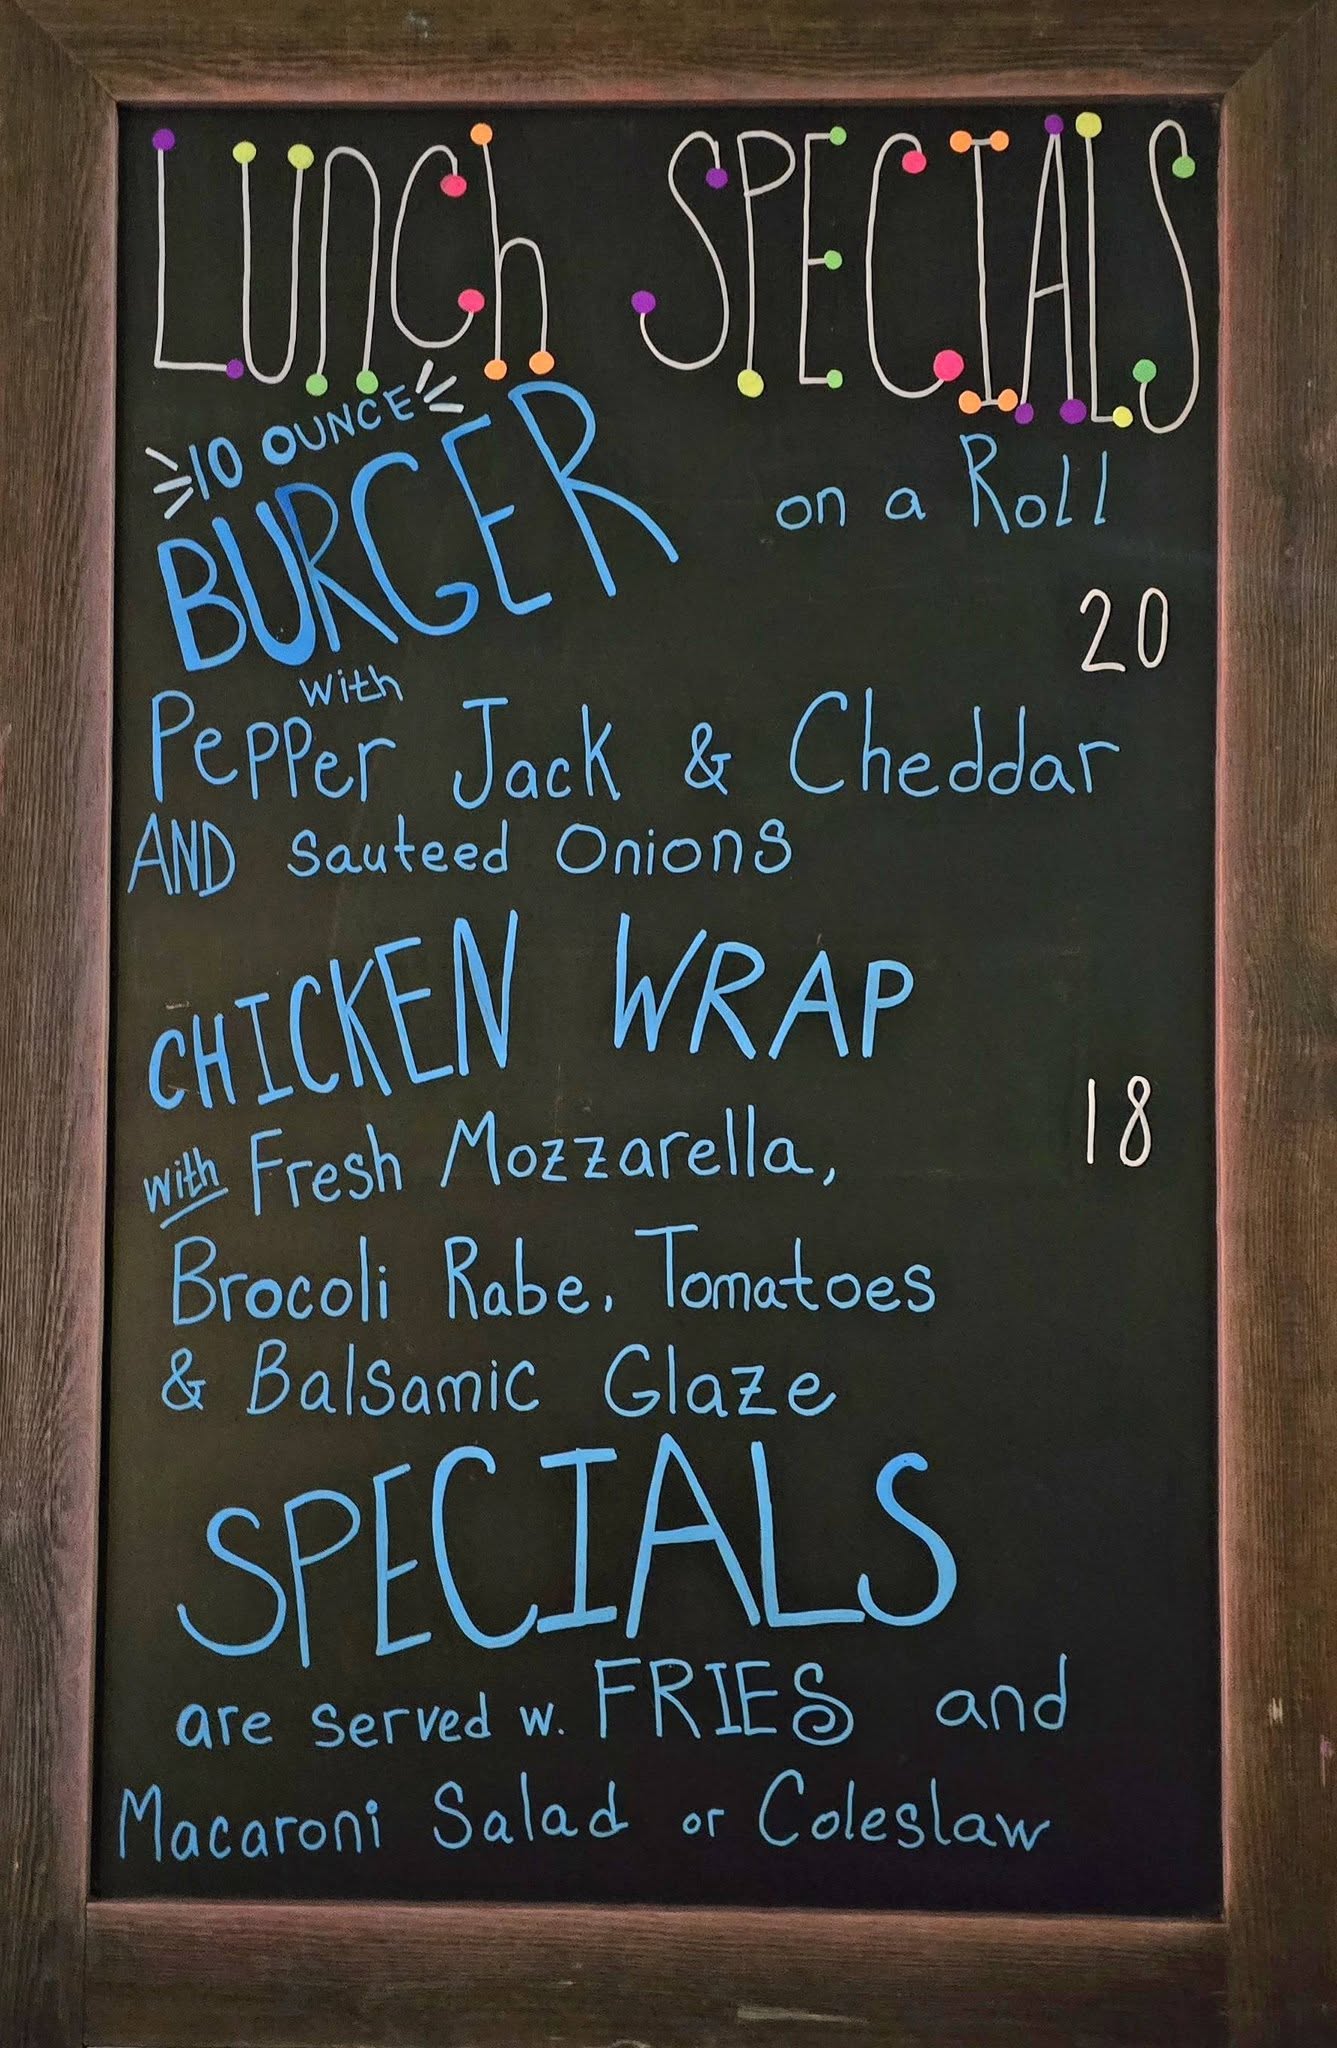 LUNCh SPECIALS
10 OUNCE
BURGER on a Roll
20
with
Pepper Jack & Cheddar
AND Sauteed Onions
CHICKEN WRAP
18
with Fresh Mozzarella,
Brocoli Rabe, Tomatoes
& Balsamic Glaze
SPECIALS
are served w. FRIES and
Macaroni Salad or Coleslaw